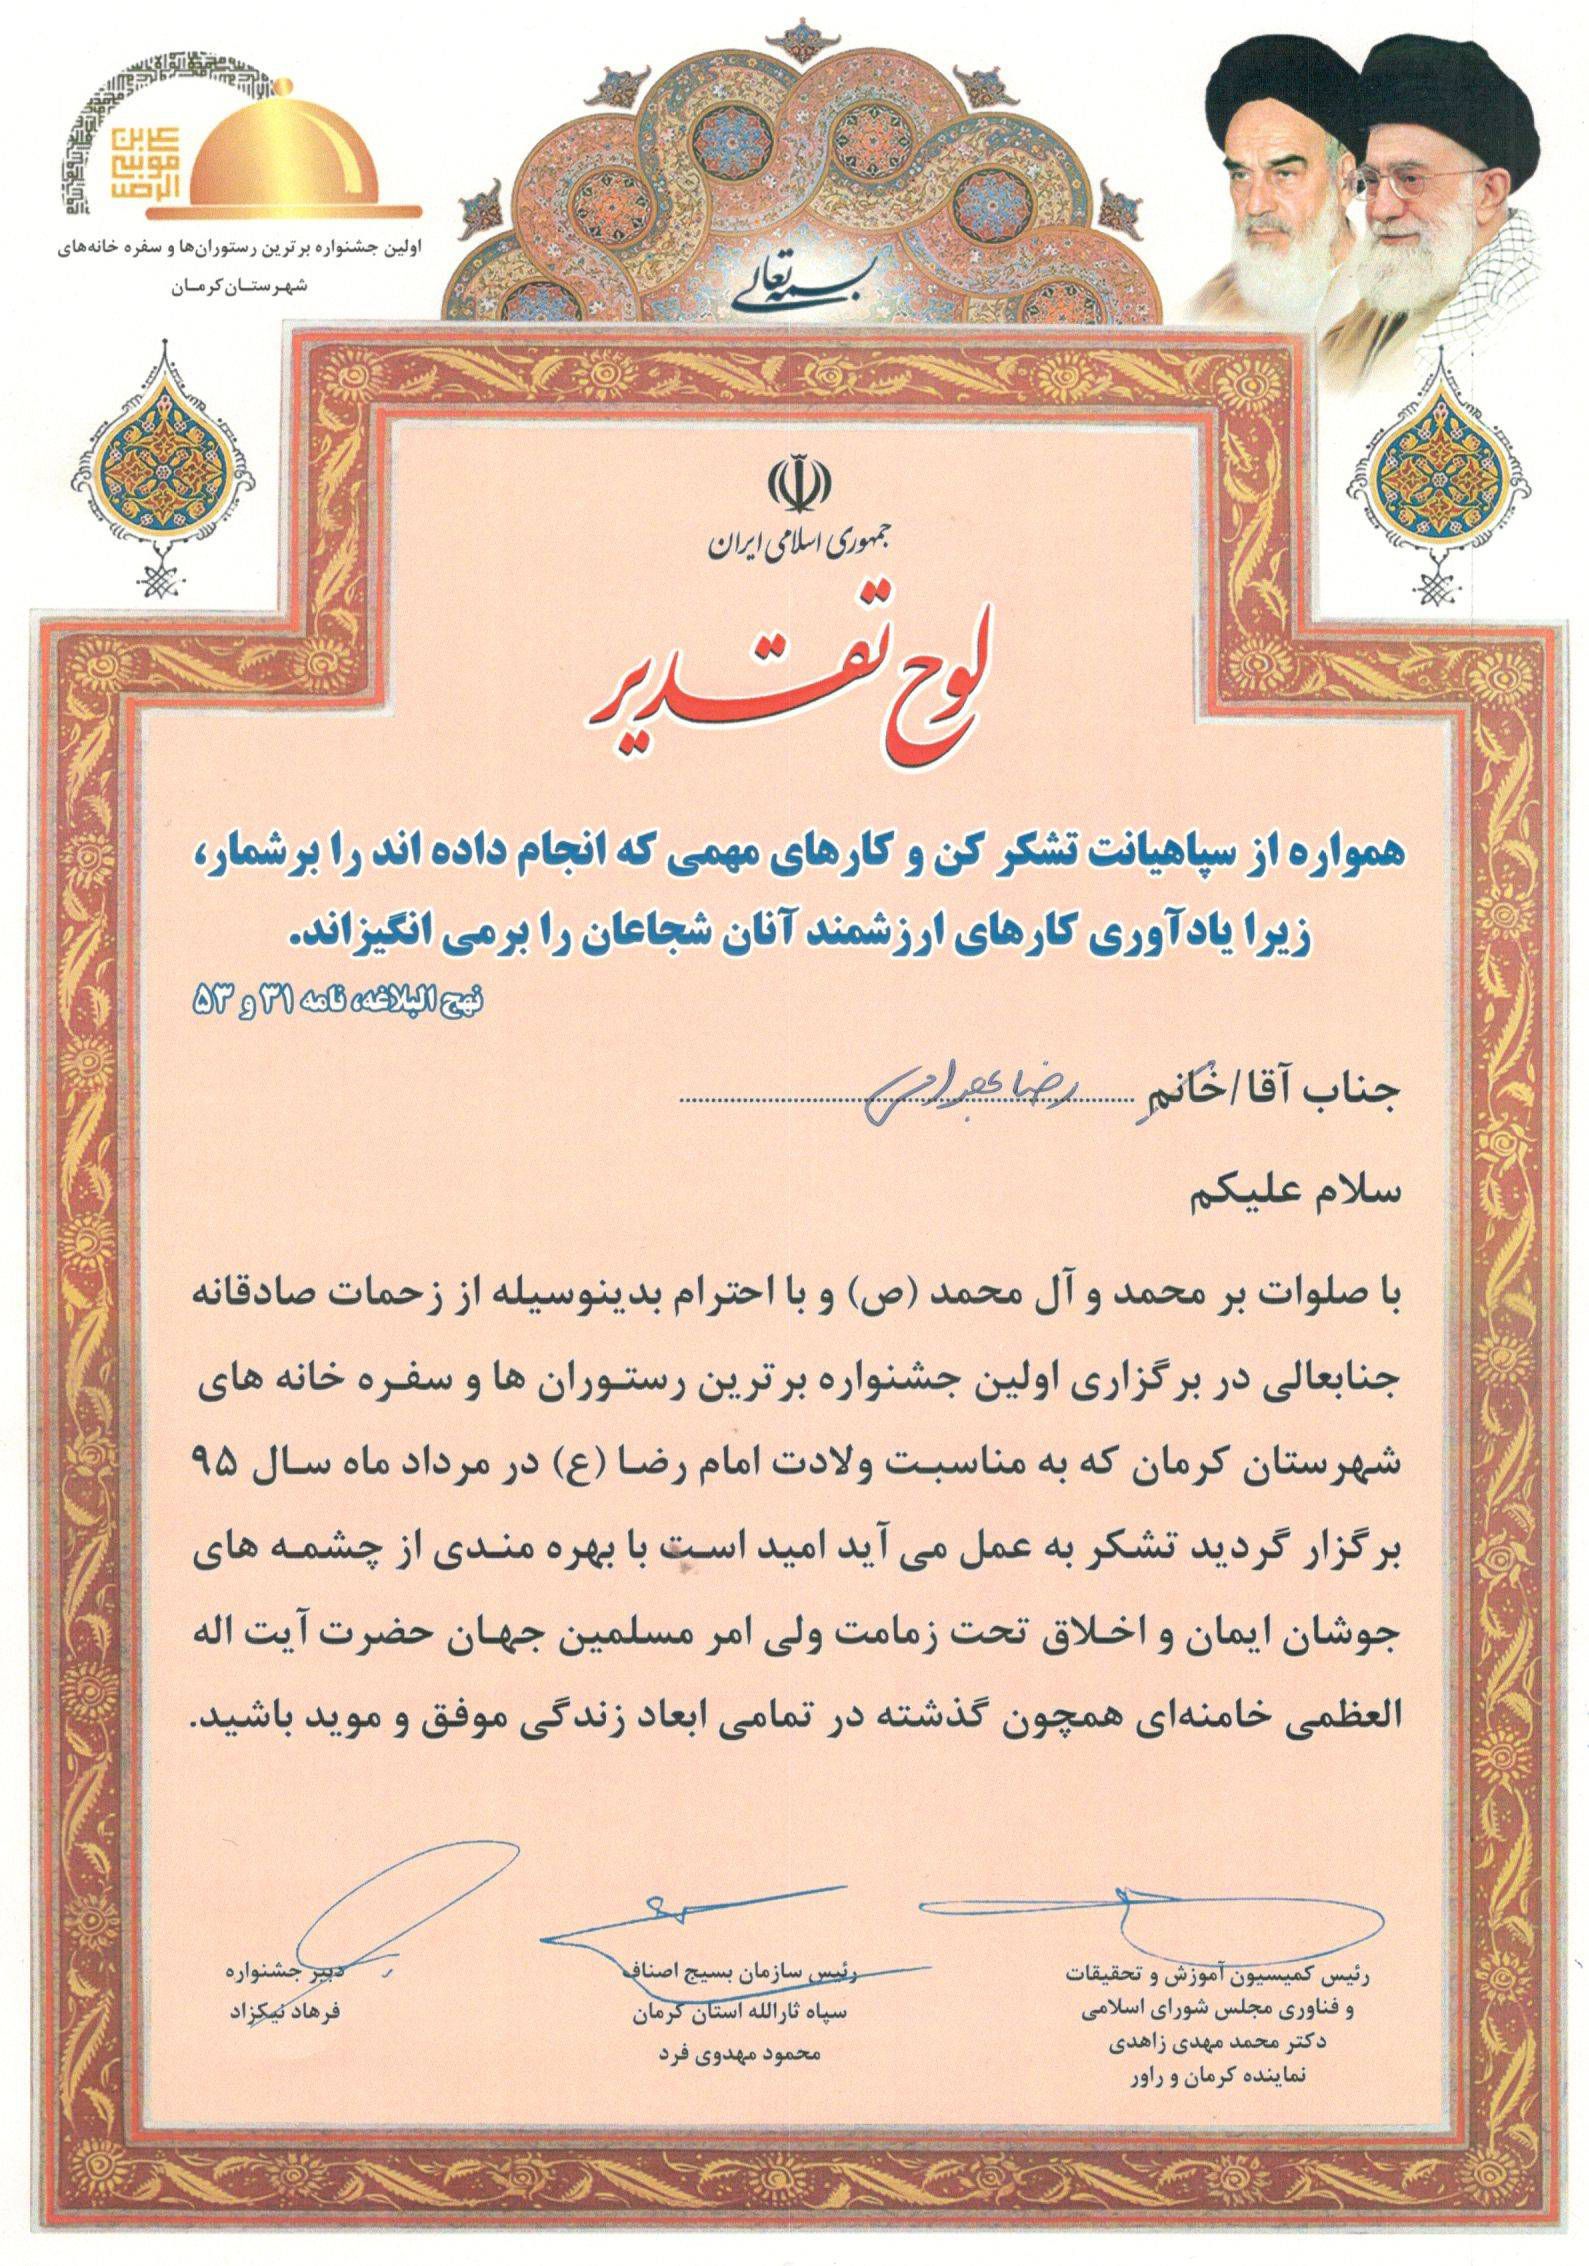 اولین جشنواره برترین رستوران‌ها و سفره خانه‌های
شهرستان کرمان
بسمه تعالی
جمهوری اسلامی ایران
لوح تقدیر
همواره از سپاهیانت تشکر کن و کارهای مهمی که انجام داده اند را برشمار،
زیرا یادآوری کارهای ارزشمند آنان شجاعان را برمی انگیزاند.
نهج البلاغه، نامه ۳۱ و ۵۳
جناب آقا/خانم رضا
سلام علیکم
با صلوات بر محمد و آل محمد (ص) و با احترام بدینوسیله از زحمات صادقانه
جنابعالی در برگزاری اولین جشنواره برترین رستوران ها و سفره خانه های
شهرستان کرمان که به مناسبت ولادت امام رضا (ع) در مرداد ماه سال ۹۵
برگزار گردید تشکر به عمل می آید امید است با بهره مندی از چشمه های
جوشان ایمان و اخلاق تحت زمامت ولی امر مسلمین جهان حضرت آیت اله
العظمی خامنه‌ای همچون گذشته در تمامی ابعاد زندگی موفق و موید باشید.
رئیس کمیسیون آموزش و تحقیقات
و فناوری مجلس شورای اسلامی
دکتر محمد مهدی زاهدی
نماینده کرمان و راور
رئیس سازمان بسیج اصناف
سپاه ثارالله استان کرمان
محمود مهدوی فرد
دبیر جشنواره
فرهاد نیکزاد